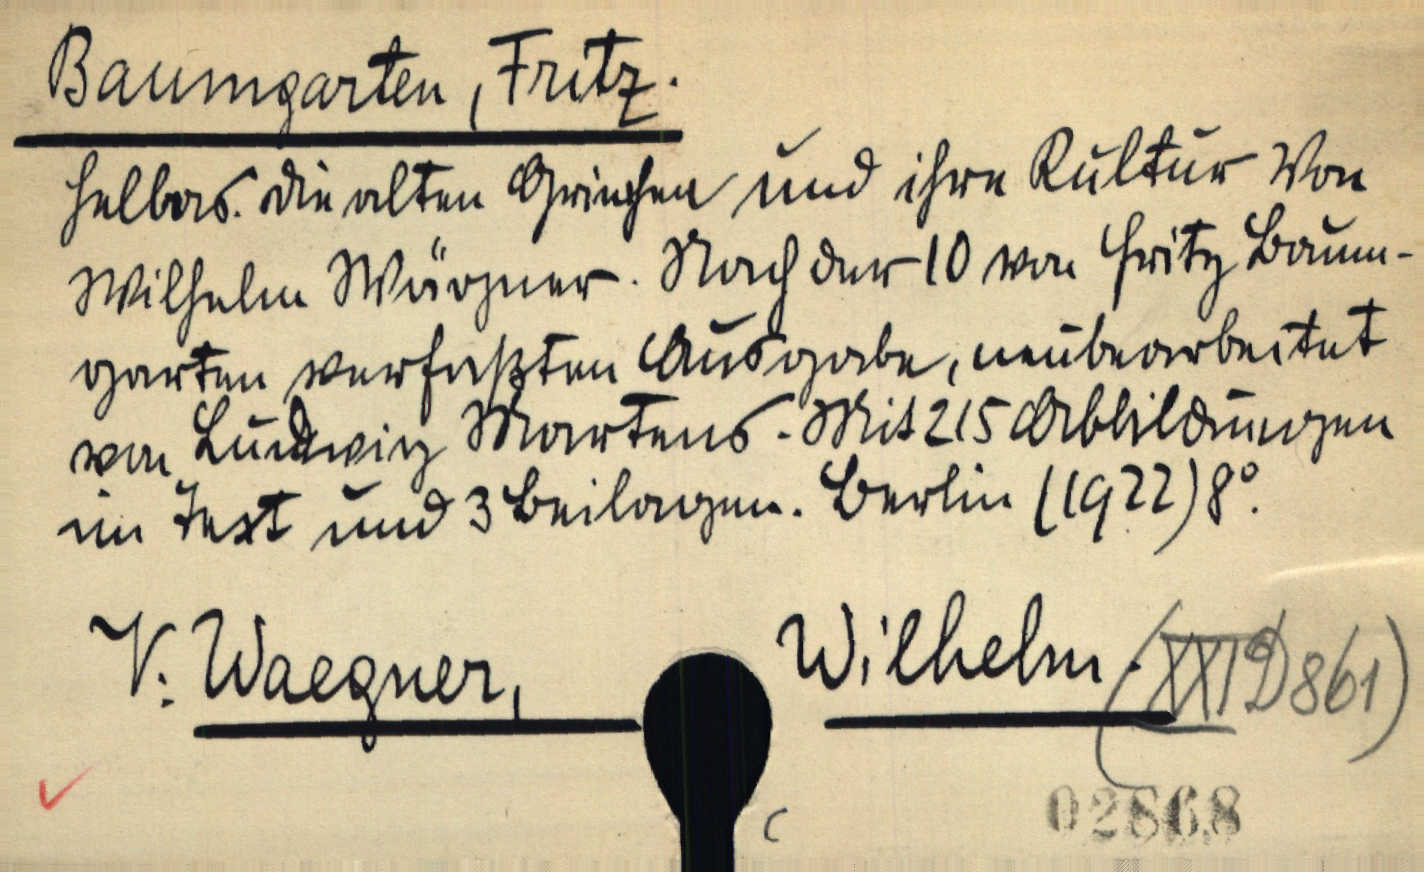 Baumgarten, Fritz.
Hellas. Die alten Griechen und ihre Kultur Von
Wilhelm Wägner. Nach der 10 von Fritz Baum-
garten verfaßten Ausgabe, neubearbeitet
von Ludwig Martens. Mit 215 Abbildungen
im Text und 3 Beilagen. Berlin (1922) 8°.
V: Waegner, Wilhelm. (XXI D 861)
c 02868